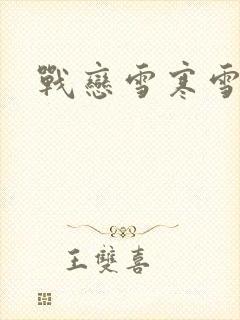 戰戀雪寒雪
王雙喜